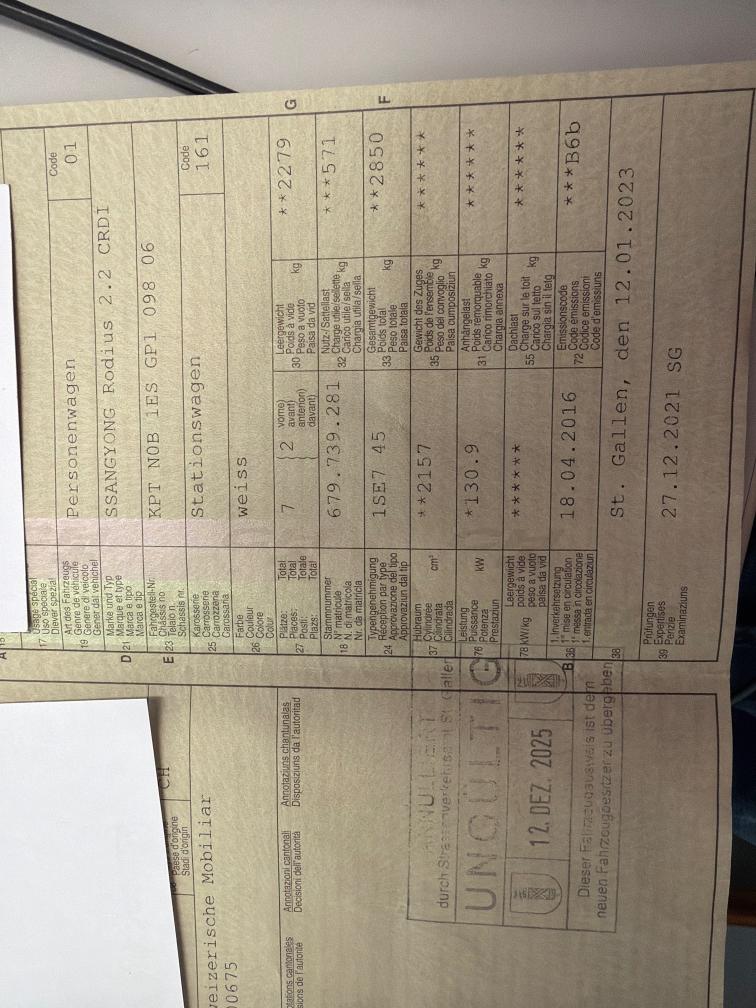 17 Usage spécial
Uso speciale
Diever spezial
Art des Fahrzeugs
19 Genre de véhicule
Genere di veicolo
Gener dal vehichel
Personenwagen
Code
01
Marke und Typ
D 21 Marque et type
Marca e tipo
Marca e tip
SSANGYONG Rodius 2.2 CRDI
Fahrgestell-Nr.
E 23 Châssis no
Telaio n.
Schassis nr.
KPT N0B 1ES GP1 098 06
Carrosserie
25 Carrosserie
Carrozzeria
Carossaria
Stationswagen
Code
161
Farbe
26 Couleur
Colore
Colur
weiss
Plätze: Total
27 Places: Total
Posti: Totale
Plazs: Total
7
2
vorne)
avant)
anteriori)
davant)
Leergewicht
30 Poids à vide
Peso a vuoto
Paisa da vid
kg
**2279
G
Stammnummer
18 N° matricule
N. di matricola
Nr. da matricla
679.739.281
Nutz-/Sattellast
32 Charge utile/sellette
Carico utile/sella
Chargia utila/sella
kg
***571
Typengenehmigung
24 Réception par type
Approvazione del tipo
Approvaziun dal tip
1SE7 45
Gesamtgewicht
33 Poids total
Peso totale
Paisa totala
kg
**2850
F
Hubraum
37 Cylindrée
Cilindrata
Cilindrada
cm³
**2157
Gewicht des Zuges
35 Poids de l'ensemble
Peso del convoglio
Paisa cumposiziun
kg
******
Leistung
76 Puissance
Potenza
Prestaziun
kW
*130.9
Anhängelast
31 Poids remorquable
Carico rimorchiato
Chargia annexa
kg
******
78 kW/kg
Leergewicht
poids à vide
peso a vuoto
paisa da vid
******
Dachlast
55 Charge sur le toit
Carico sul tetto
Chargia sin il tetg
kg
******
1. Inverkehrsetzung
B 36 1re mise en circulation
1a messa in circolazione
1. entrada en circulaziun
18.04.2016
Emissionscode
72 Code émissions
Codice emissioni
Code d'emissiuns
***B6b
38
St. Gallen, den 12.01.2023
Prüfungen
39 Expertises
Perizie
Examinaziuns
27.12.2021 SG
Paese d'origine
Stadi d'origin
CH
weizerische Mobiliar
00675
tations cantonales
sions de l'autorité
Annotazioni cantonali
Decisioni dell'autorità
Annotaziuns chantunalas
Disposiziuns da l'autoritad
ANNULLIERT
durch Strassenverkehrsamt St. Gallen
UNGÜLTIG
12. DEZ. 2025
Dieser Fahrzeugausweis ist dem
neuen Fahrzeugbesitzer zu übergeben